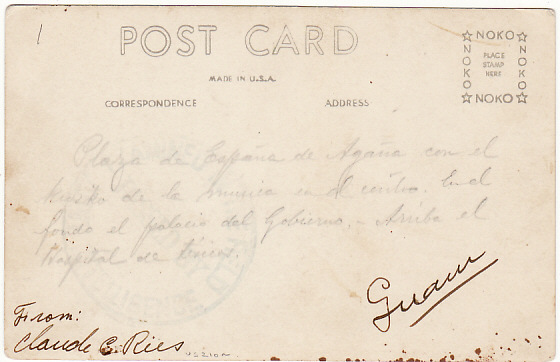 1
POST CARD
MADE IN U.S.A.
CORRESPONDENCE
ADDRESS
NOKO
NOKO
NOKO
NOKO
PLACE
STAMP
HERE
Plaza de España de Agaña con el
kiosko de la musica en el centro. En el
fondo el palacio del Gobierno. - Arriba el
Hospital de
Guam
From:
Claude C. Ries